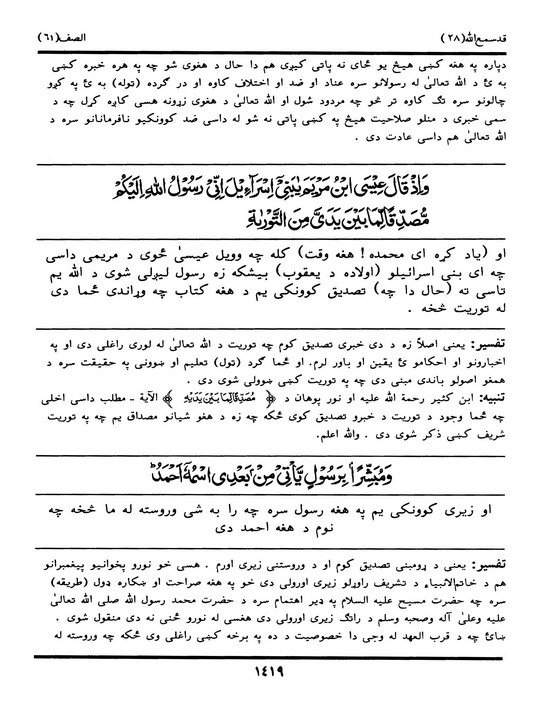 قدسمع الله (٢٨) الصف (٦١)
دپاره په هغه کښي هیڅ یو ځای نه پاتي کیږي هم دا حال د هغوی شو چه په هره خبره کښي
به ئ د الله تعالیٰ له رسولانو سره عناد او ضد او اختلاف کاوه او در گرده (توله) به ئ په کږو
چالونو سره تګ کاوه تر څو چه مردود شول او الله تعالیٰ د هغوی زړونه هسي کاږه کړل چه د
سمي خبري د منلو صلاحیت هیڅ په کښي پاتي نه شو له داسي ضد کوونکیو نافرمانانو سره د
الله تعالیٰ هم داسي عادت دی .
وَاِذْ قَالَ عِيْسَى ابْنُ مَرْيَمَ يٰبَنِيْٓ اِسْرَآءِيْلَ اِنِّيْ رَسُوْلُ اللهِ اِلَيْكُمْ
مُّصَدِّقًا لِّمَا بَيْنَ يَدَيَّ مِنَ التَّوْرٰىةِ
او (یاد کړه ای محمده! هغه وقت) کله چه وویل عیسیٰ ځوی د مریمي داسي
چه ای بني اسرائیلو (اولاده د یعقوب) بیشکه زه رسول لیږلی شوی د الله یم
تاسي ته (حال دا چه) تصدیق کوونکی یم د هغه کتاب چه وړاندي ځما دی
له توریت څخه .
تفسیر: یعني اصلاً زه د دی خبري تصدیق کوم چه توریت د الله تعالیٰ له لوري راغلی دی او په
اخبارونو او احکامو ئ یقین او باور لرم. او ځما گرد (تول) تعلیم او ښوونی په حقیقت سره د
همغو اصولو باندي مبني دی چه په توریت کښي ښوولی شوی دی .
تنبیه: ابن کثیر رحمة الله علیه او نور پوهان د ﴿ مُصَدِّقًا لِّمَا بَيْنَ يَدَيْهِ ﴾ الآیة - مطلب داسي اخلی
چه ځما وجود د توریت د خبرو تصدیق کوي ځکه چه زه د هغو شیانو مصداق یم چه په توریت
شریف کښي ذکر شوی دی . والله اعلم.
وَمُبَشِّرًۢا بِرَسُوْلٍ يَّاْتِيْ مِنْۢ بَعْدِي اسْمُهٗٓ اَحْمَدُ ؕ
او زیری کوونکی یم په هغه رسول سره چه را به شي وروسته له ما څخه چه
نوم د هغه احمد دی
تفسیر: یعني د ړومبني تصدیق کوم او د وروستني زیری اورم . هسي خو نورو پخوانیو پیغمبرانو
هم د خاتم الانبیاء د تشریف راوړلو زیری اورولی دی خو په هغه صراحت او ښکاره ډول (طریقه)
سره چه حضرت مسیح علیه السلام په ډیر اهتمام سره د حضرت محمد رسول الله صلی الله تعالیٰ
علیه وعلیٰ آله وصحبه وسلم د راتګ زیری اورولی دی هغسي له نورو څخني نه دی منقول شوی .
ښائ چه د قرب العهد له وجي دا خصوصیت د ده په برخه کښي راغلی وي ځکه چه وروسته له
١٤١٩